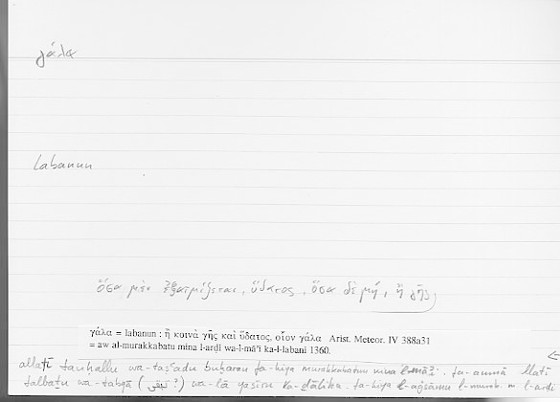 γάλα
labanun
ὅσα μὲν ἐξατμίζεται, ὕδατος, ὅσα δὲ μή, ἢ γῆς,
γάλα = labanun : ἢ κοινὰ γῆς καὶ ὕδατος, οἷον γάλα Arist. Meteor. IV 388a31
= aw al-murakkabatu mina l-arḍi wa-l-mā'i ka-l-labani 1360.
allatī tanḥallu wa-taṣʿadu buḫāran fa-hiya murakkabatun mina l-māʾ. fa-ammā llatī
talbaṯu wa-tabqā ( ) wa-lā yaṣīru ka-ḏālika fa-hiya l-aǧsāmu l-murak. m. l-arḍi